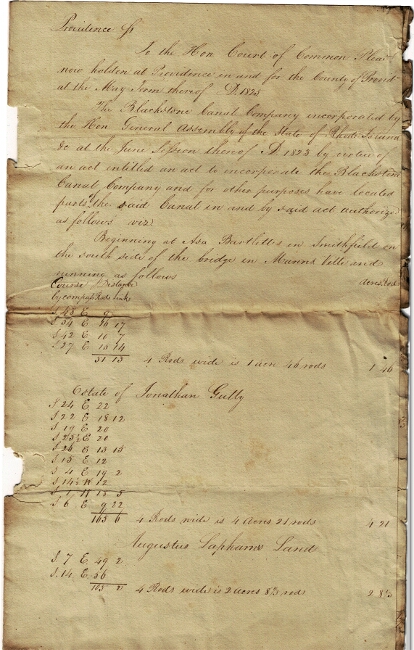 Providence Sc
To the Hon Court of Common Pleas
now holden at Providence in and for the County of Provid
at the May Term thereof AD 1825
The Blackstone Canal Company incorporated by
the Hon General Assembly of the State of Rhode Island
&c at the June Session thereof AD 1823 by virtue of
an act entitled an act to incorporate the Blackstone
Canal Company and for other purposes have located
part of the said Canal in and by said act authorize
as follows viz
Beginning at Asa Bartletts in Smithfield on
the south side of the bridge in Manns Ville and
running as follows
Course Distance
by compass Rods links
acres rods
S 34 E 16 17
S 42 E 11 7
S 27 E 13 14
51 13 4 Rods wide is 1 acre 46 rods 1 46
Estate of Jonathan Gully
S 24 E 22
S 22 E 18 12
S 19 E 20
E 20
E 13 15
S 15 E 12
S 4 E 19 2
W 12
W 12 5
S 6 E 9 22
163 6 4 Rods wide is 4 acres 21 rods 4 21
Augustus Laphams Land
S 7 E 49 2
S 14 E 66
115 2 4 Rods wide is 2 acres rods 2